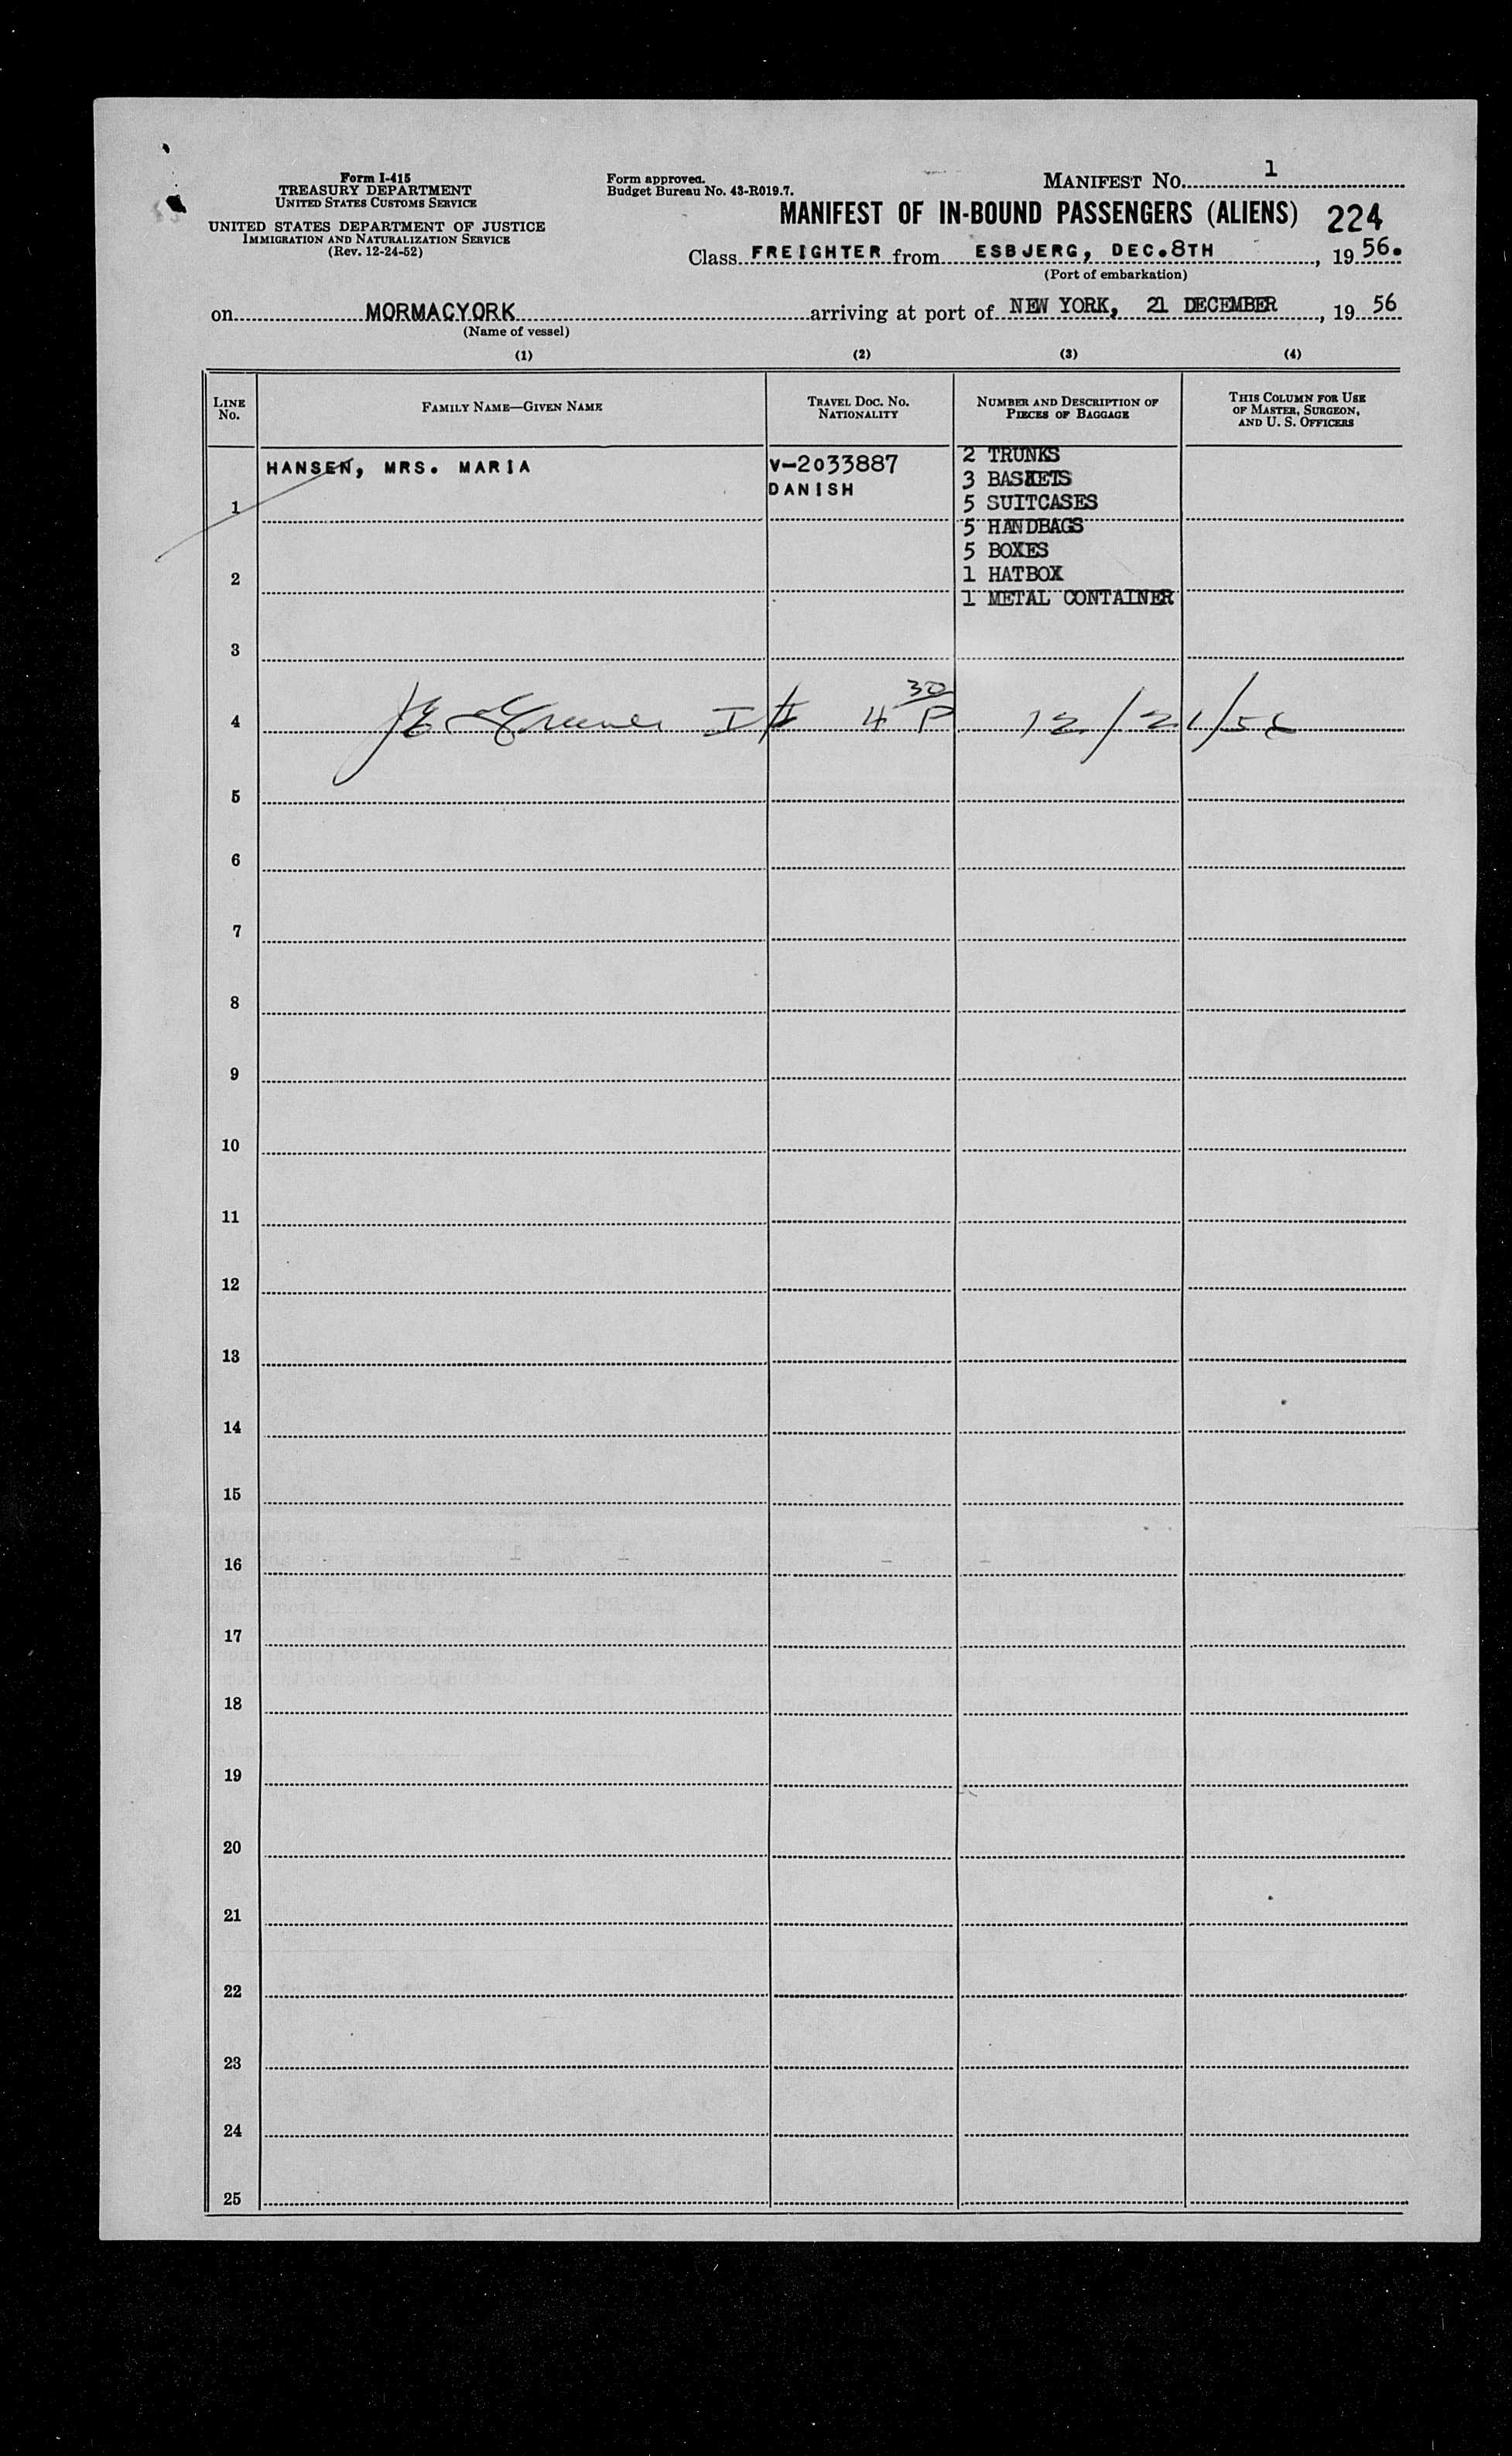 Form I-415
TREASURY DEPARTMENT
UNITED STATES CUSTOMS SERVICE
UNITED STATES DEPARTMENT OF JUSTICE
IMMIGRATION AND NATURALIZATION SERVICE
(Rev. 12-24-52)
Form approved.
Budget Bureau No. 43-R019.7.
MANIFEST No. 1
MANIFEST OF IN-BOUND PASSENGERS (ALIENS) 224
Class FREIGHTER from ESBJERG, DEC.8TH, 19 56.
(Port of embarkation)
on MORMACYORK arriving at port of NEW YORK, 21 DECEMBER, 19 56
(Name of vessel)
(1) (2) (3) (4)
LINE No.
FAMILY NAME—GIVEN NAME
TRAVEL DOC. No. NATIONALITY
NUMBER AND DESCRIPTION OF PIECES OF BAGGAGE
THIS COLUMN FOR USE OF MASTER, SURGEON, AND U. S. OFFICERS
HANSEN, MRS. MARIA V-2033887 2 TRUNKS
DANISH 3 BASKETS
1 5 SUITCASES
5 HANDBAGS
5 BOXES
2 1 HATBOX
1 METAL CONTAINER
3
4 4 30 P 12/21/56
5
6
7
8
9
10
11
12
13
14
15
16
17
18
19
20
21
22
23
24
25